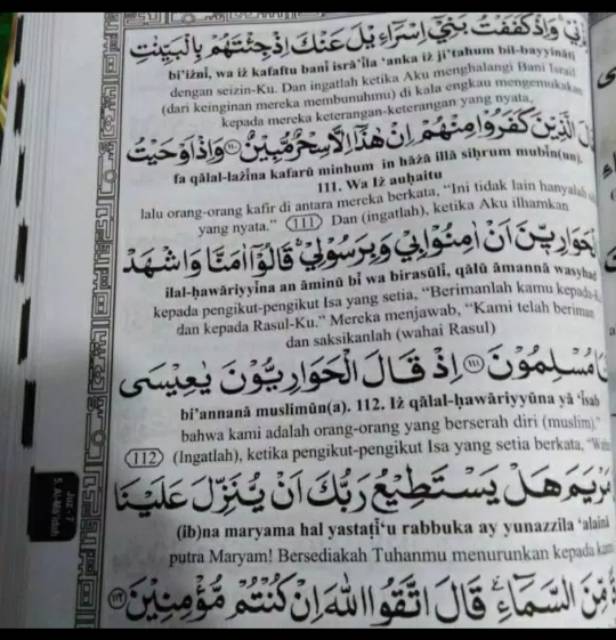 وَاِذْ كَفَفْتُ بَنِيْٓ اِسْرَاۤءِيْلَ عَنْكَ اِذْ جِئْتَهُمْ بِالْبَيِّنٰتِ
bi'iżnī, wa iż kafaftu banī isrā'īla 'anka iż ji'tahum bil-bayyināti
dengan seizin-Ku. Dan ingatlah ketika Aku menghalangi Bani Israil
(dari keinginan mereka membunuhmu) di kala engkau mengemukakan
kepada mereka keterangan-keterangan yang nyata,
الَّذِيْنَ كَفَرُوْا مِنْهُمْ اِنْ هٰذَآ اِلَّا سِحْرٌ مُّبِيْنٌ ۝١١٠ وَاِذْ اَوْحَيْتُ
fa qālal-lażīna kafarū minhum in hāżā illā siḥrum mubīn(un).
111. Wa Iż auḥaitu
lalu orang-orang kafir di antara mereka berkata, "Ini tidak lain hanyalah
yang nyata." (111) Dan (ingatlah), ketika Aku ilhamkan
الْحَوَارِيّٖنَ اَنْ اٰمِنُوْا بِيْ وَبِرَسُوْلِيْ ۚ قَالُوْٓا اٰمَنَّا وَاشْهَدْ
ilal-ḥawāriyyīna an āminū bī wa birasūlī, qālū āmannā wasyhad
kepada pengikut-pengikut Isa yang setia, "Berimanlah kamu kepada-Ku
dan kepada Rasul-Ku." Mereka menjawab, "Kami telah beriman
dan saksikanlah (wahai Rasul)
مُسْلِمُوْنَ ۝١١١ اِذْ قَالَ الْحَوَارِيُّوْنَ يٰعِيْسَى
bi'annanā muslimūn(a). 112. Iż qālal-ḥawāriyyūna yā 'īsab
bahwa kami adalah orang-orang yang berserah diri (muslim)."
(112) (Ingatlah), ketika pengikut-pengikut Isa yang setia berkata,
مَرْيَمَ هَلْ يَسْتَطِيْعُ رَبُّكَ اَنْ يُّنَزِّلَ عَلَيْنَا
(ib)na maryama hal yastaṭī'u rabbuka ay yunazzila 'alainā
putra Maryam! Bersediakah Tuhanmu menurunkan kepada kami
مِّنَ السَّمَاۤءِ ۗ قَالَ اتَّقُوا اللّٰهَ اِنْ كُنْتُمْ مُّؤْمِنِيْنَ ۝١١٢
Juz - 7
5. Al-Mā'idah